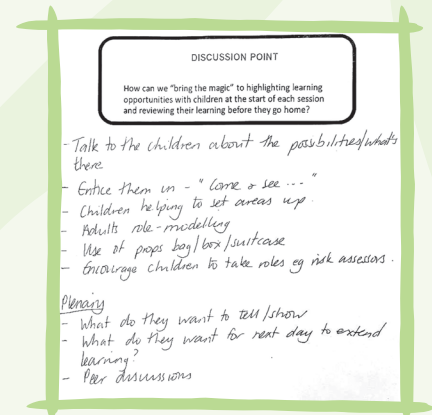 DISCUSSION POINT
How can we "bring the magic" to highlighting learning
opportunities with children at the start of each session
and reviewing their learning before they go home?
- Talk to the children about the possibilities/what's
there
- Entice them in - "Come & see ..."
- Children helping to set areas up.
- Adults role-modelling
- Use of props bag/box/suitcase
- Encourage children to take roles eg risk assessors.
Plenary
- What do they want to tell/show
- What do they want for next day to extend
learning?
- Peer discussions